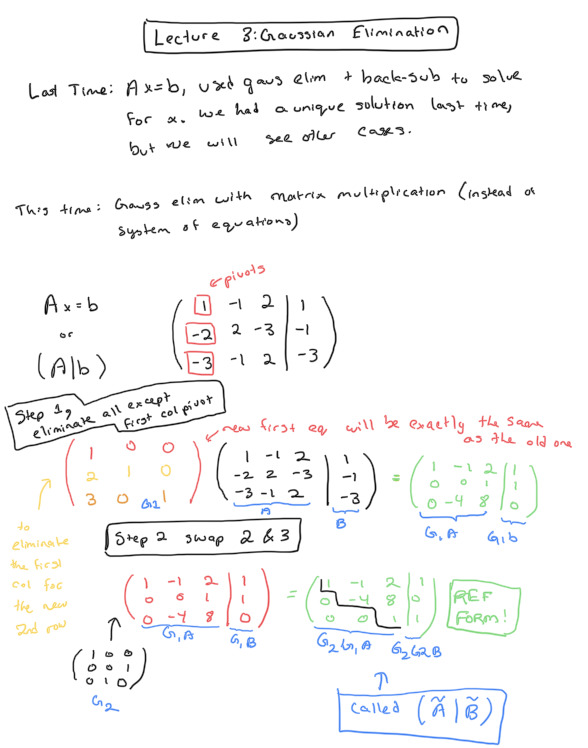 Lecture 3: Gaussian Elimination
Last Time: Ax=b, used gaus elim + back-sub to solve
for x. we had a unique solution last time,
but we will see other cases.
This time: Gauss elim with matrix multiplication (instead of
system of equations)
← pivots
Ax=b
or
(A|b)
1 -1 2 | 1
-2 2 -3 | -1
-3 -1 2 | -3
Step 1, eliminate all except
first col pivot
← new first eq will be exactly the same
as the old one
1 0 0
2 1 0
3 0 1
G2
1 -1 2 | 1
-2 2 -3 | -1
-3 -1 2 | -3
A B
=
1 -1 2 | 1
0 0 1 | 1
0 -4 8 | 0
G1A G1b
to
eliminate
the first
col for
the new
2nd row
Step 2 swap 2 & 3
1 -1 2 | 1
0 0 1 | 1
0 -4 8 | 0
G1A G1B
=
1 -1 2 | 1
0 -4 8 | 0
0 0 1 | 1
G2G1A G2G2B
REF
FORM!
1 0 0
0 0 1
0 1 0
G2
called (Ã | B̃)